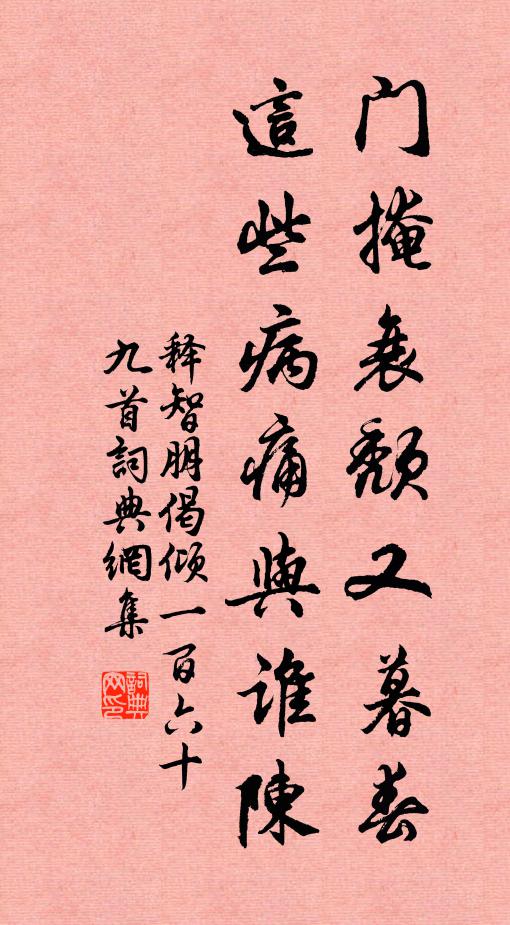 门掩衰颓又暮春
這些病痛與誰陳
释智朋偈倾一百六十
九首詞典網集
詞典
网印